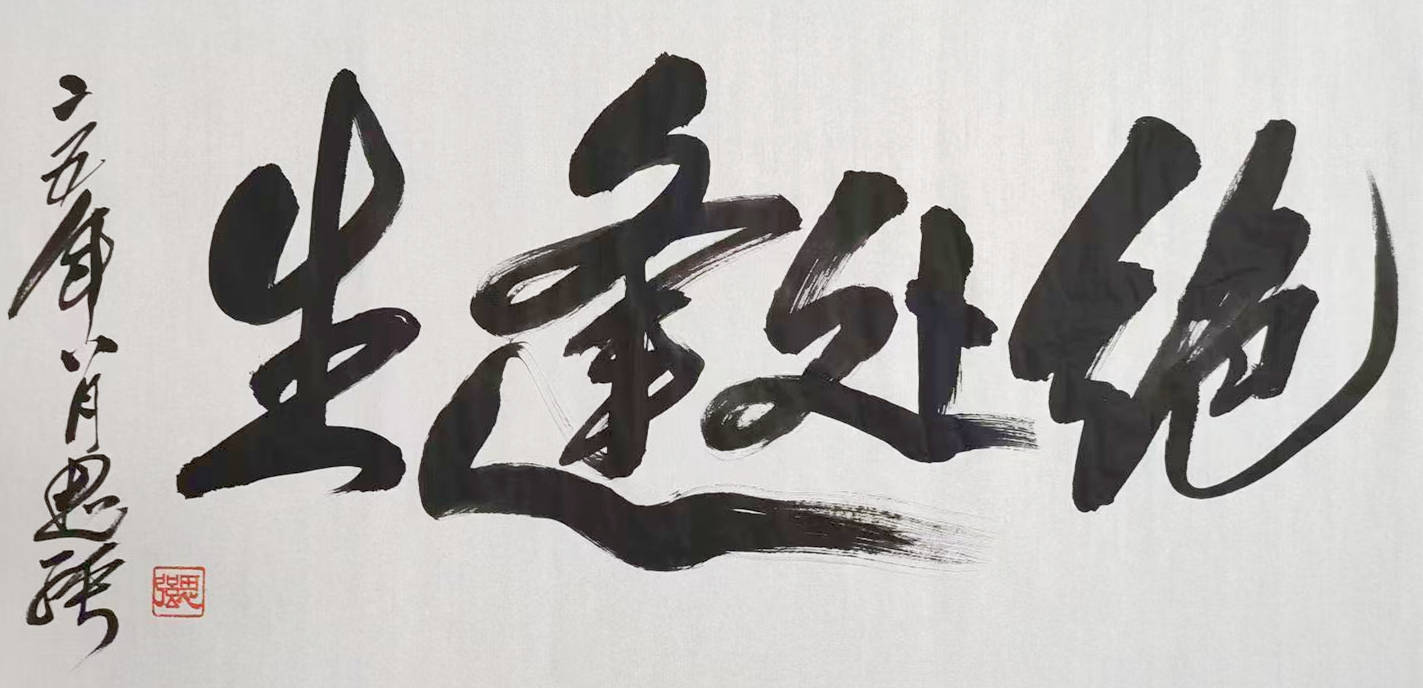 绝处逢生
二五年八月思
思